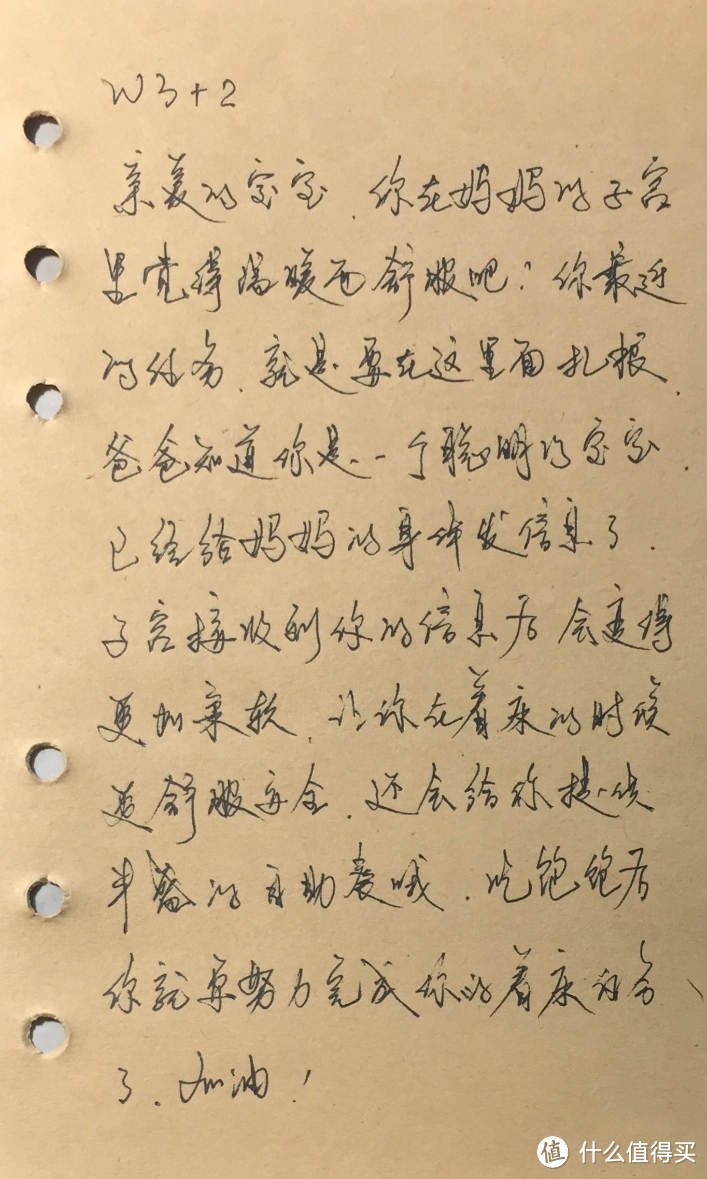 W3+2
亲爱的宝宝,你在妈妈的子宫
里觉得温暖而舒服吧?你最近
的任务,就是要在这里面扎根,
爸爸知道你是一个聪明的宝宝,
已经给妈妈的身体发信息了.
子宫接收到你的信息后会变得
更加柔软,让你在着床的时候
更舒服安全,还会给你提供
丰盛的自助餐哦.吃饱饱后
你就要努力完成你的着床任务
了.加油!
值 什么值得买